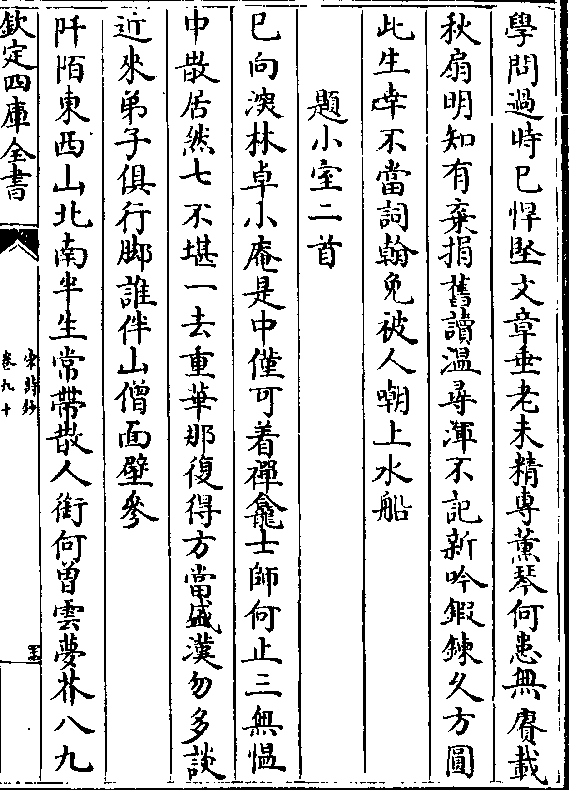 學問過時已悍堅文章垂老未精專薰琴何患無賡載
秋扇明知有棄捐舊讀温尋渾不記新吟鍜鍊久方圓
此生幸不當詞翰免被人嘲上水船
題小室二首
已向漢林卓小庵是中僅可着禪龕士師何止三無愠
中散居然七不堪一去重華那復得方當盛漢勿多談
近來弟子俱行脚誰伴山僧面壁參
阡陌東西山北南半生常帶散人銜何曾雲夢芥八九
欽定四庫全書
宋詩鈔
卷九十